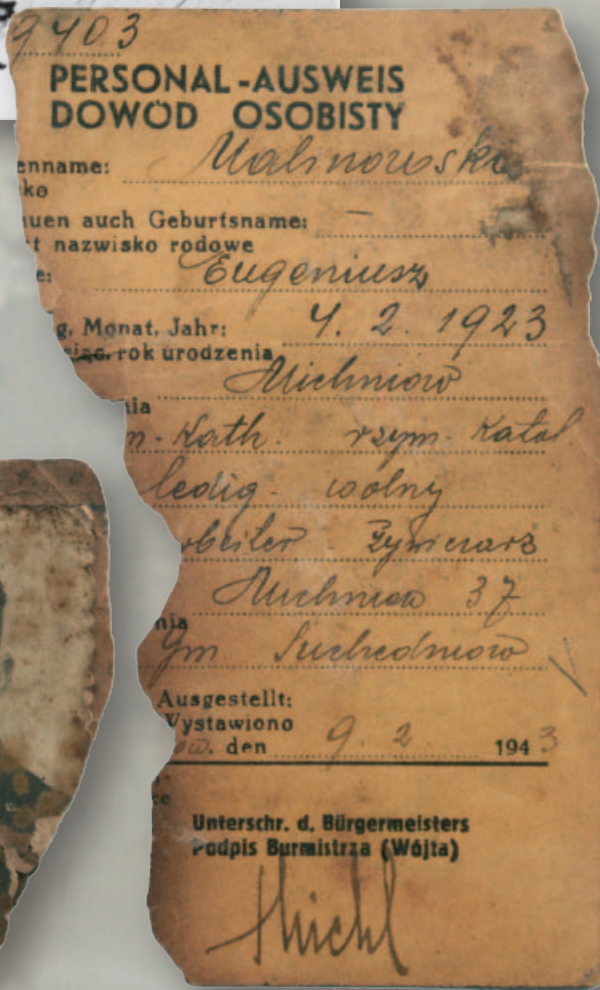 9403
PERSONAL-AUSWEIS
DOWÓD OSOBISTY
enname: Malinowski
ko
uen auch Geburtsname: —
t nazwisko rodowe
e: Eugeniusz
g, Monat, Jahr: 4. 2. 1923
siąc, rok urodzenia
Michniów
nia
m-Kath. rzym-Katol
ledig - wolny
rbeiter Żywiciarz
Michniów 37
nia
gm Suchedniów
Ausgestellt:
Wystawiono
ów. den 9. 2. 1943
ce
Unterschr. d. Bürgermeisters
Podpis Burmistrza (Wójta)